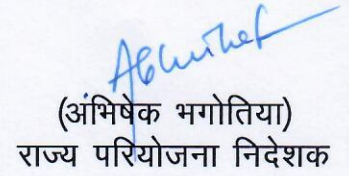 Abhishek
(अंभिषेक भगोतिया)
राज्य परियोजना निदेशक